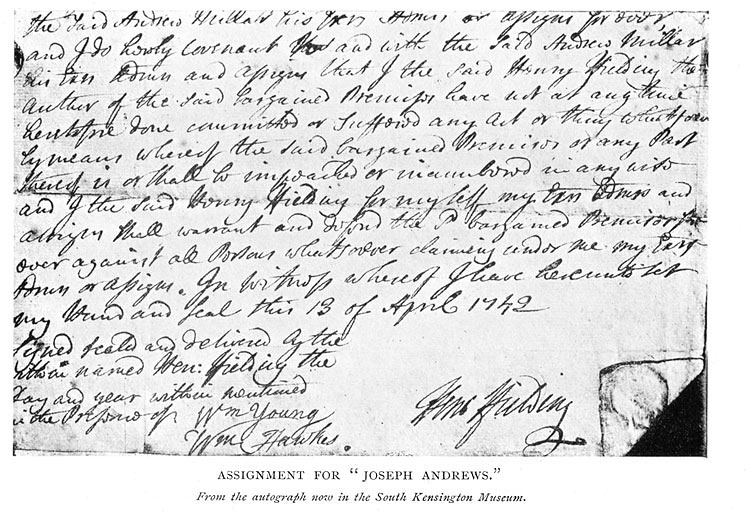 the said Andrew Millar his Exrs Admrs or assigns for ever
and I do hereby Covenant to and with the said Andrew Millar
his Exrs Admrs and assigns that I the said Henry Fielding the
Author of the said bargained Premisses have not at any time
heretofore done committed or suffered any Act or thing whatsoever
by means whereof the said bargained Premisses or any Part
thereof is or shall be impeached or incumbered in any wise
and I the said Henry Fielding for myself my Exrs Admrs and
assigns shall warrant and defend the sd bargained Premisses for
ever against all Persons whatsoever claiming under me my Exrs
Admrs or assigns. In Witness whereof I have hereunto set
my Hand and seal this 13 of April 1742
Signed sealed and delivered by the
within named Hen: Fielding the
Day and year within mentioned
in the Presence of
Wm Young
Wm Hawkes.
Hen Fielding
ASSIGNMENT FOR "JOSEPH ANDREWS."
From the autograph now in the South Kensington Museum.